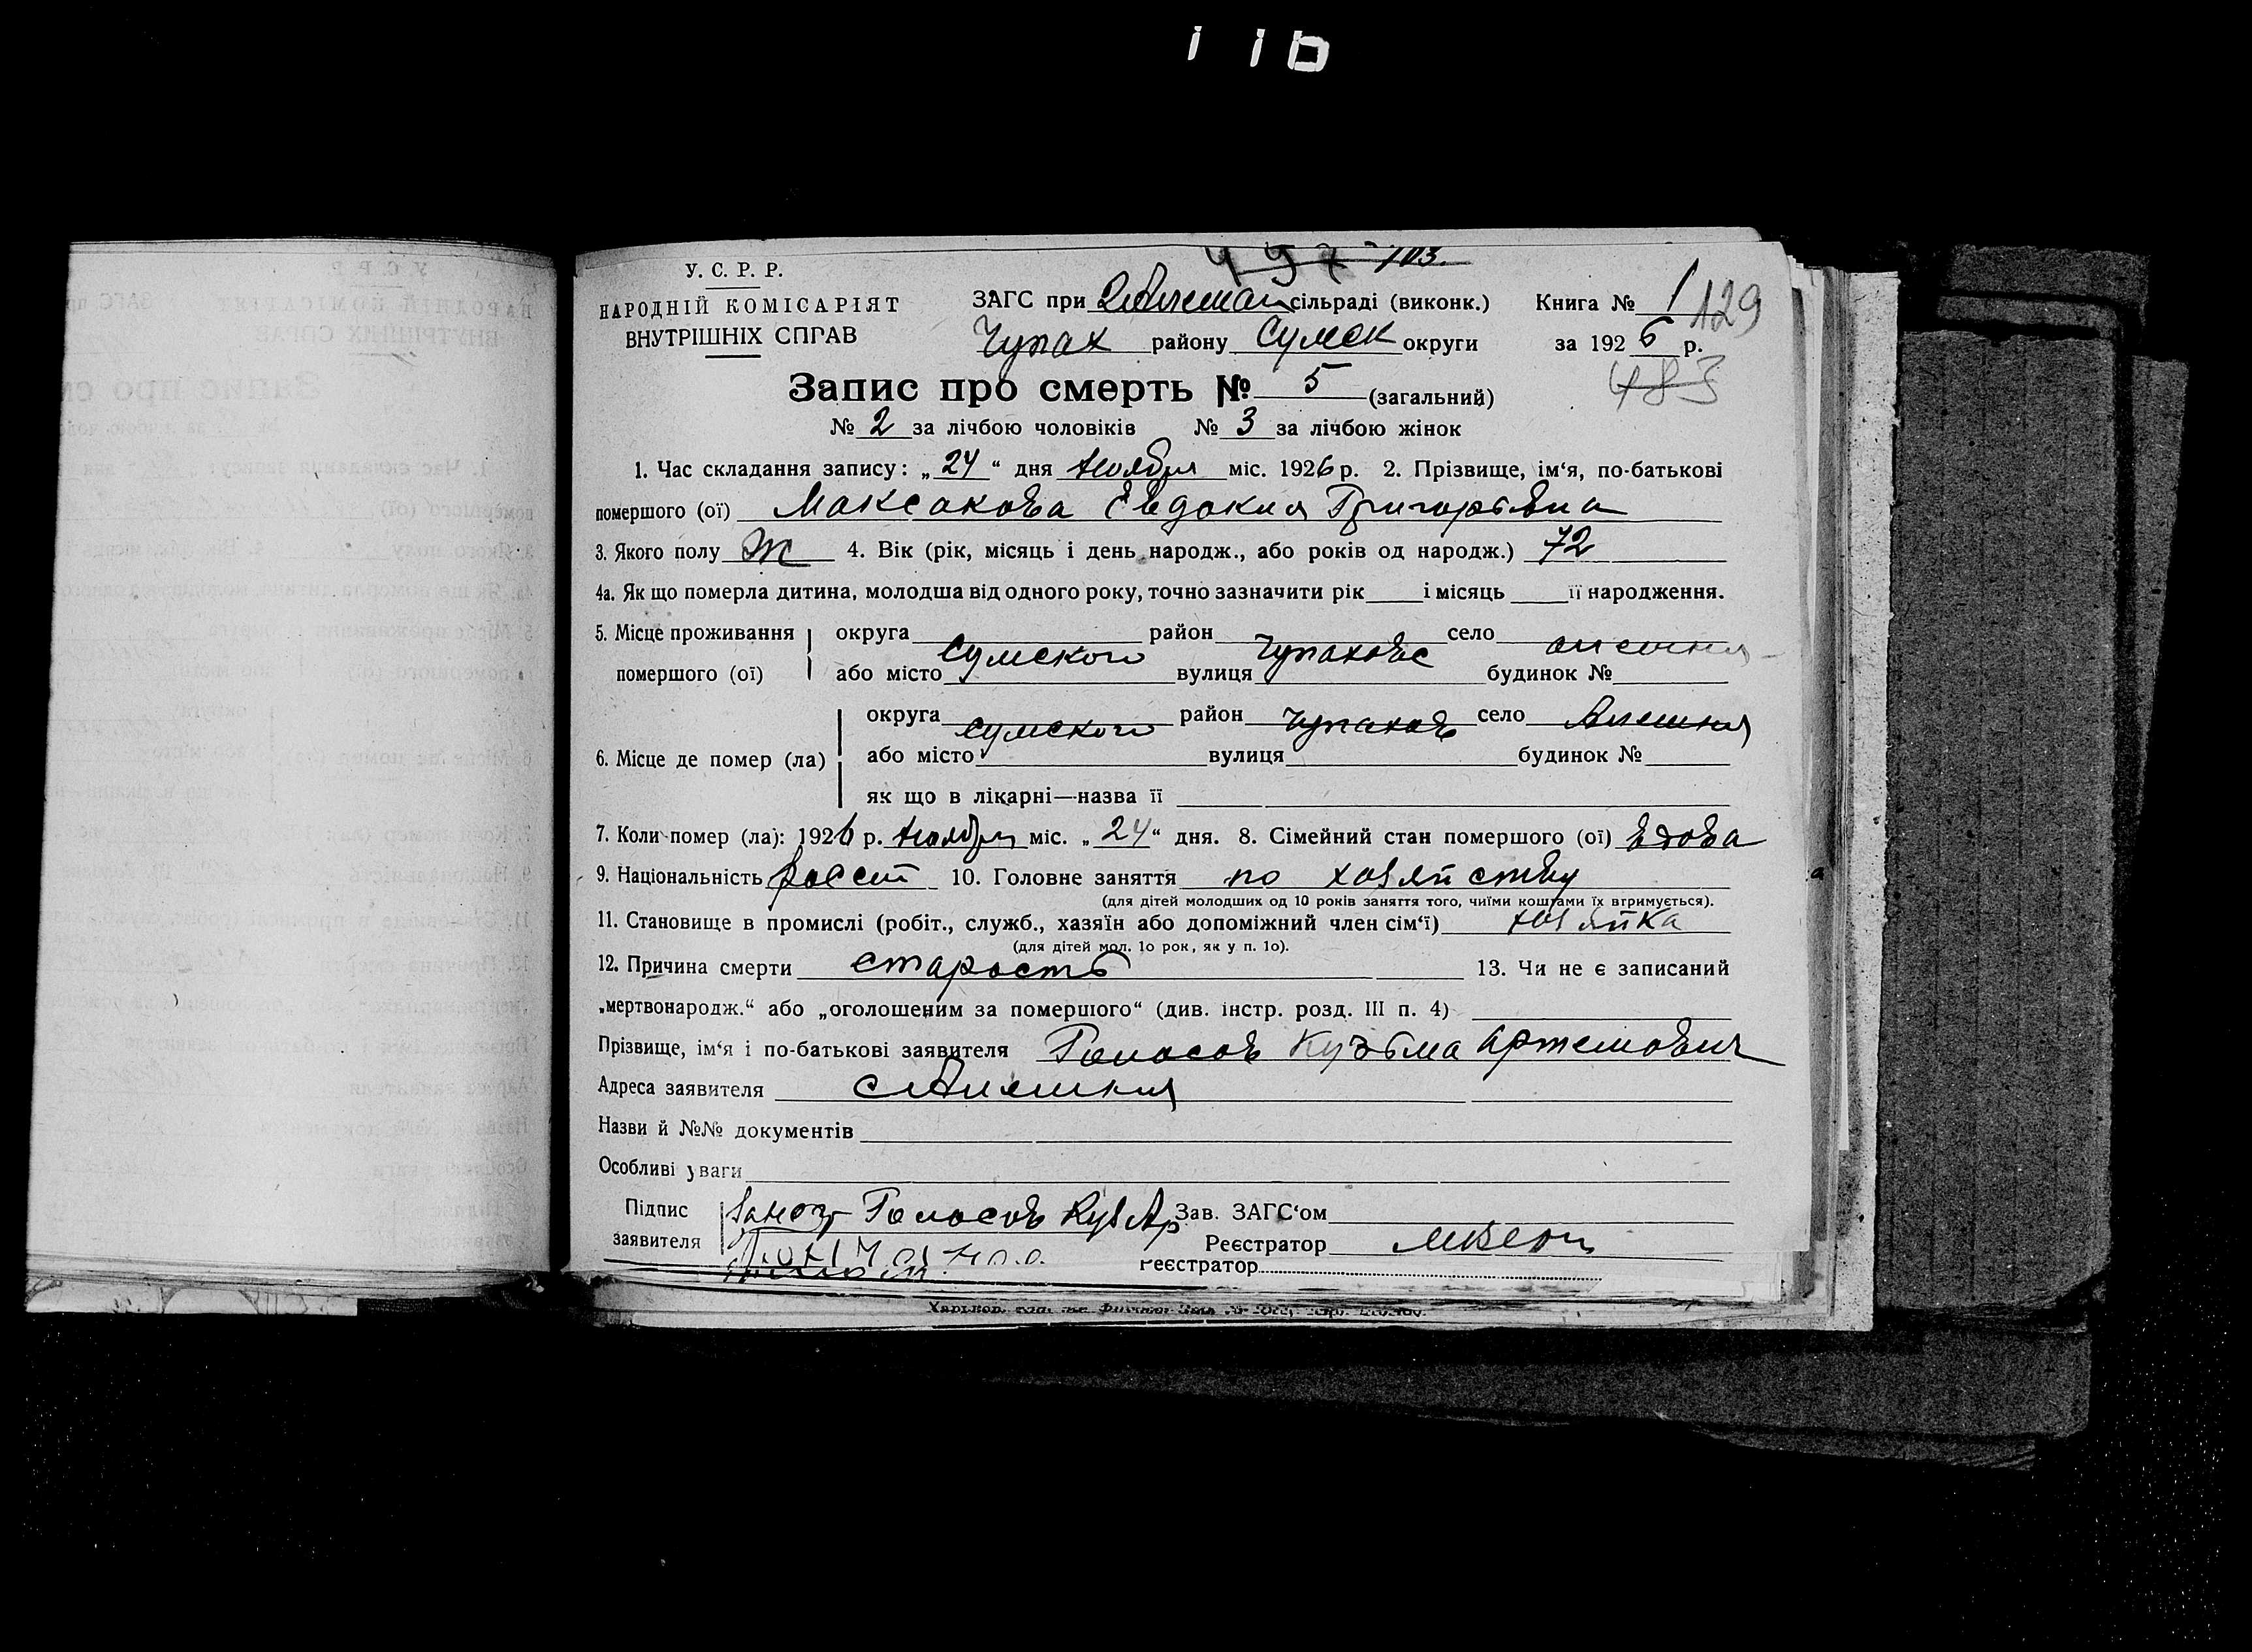 110
497 103.
У. С. Р. Р.
НАРОДНІЙ КОМІСАРІЯТ
ВНУТРІШНІХ СПРАВ
ЗАГС при сільраді (виконк.) Книга № 1 129
Чупах району Сумск округи за 1926 р.
483
Запис про смерть № 5 (загальний)
№ 2 за лічбою чоловіків № 3 за лічбою жінок
1. Час складання запису: „24“ дня Ноября міс. 1926 р. 2. Прізвище, ім‘я, по-батькові
помершого (ої) Максакова Евдокия Григорьевна
3. Якого полу Ж 4. Вік (рік, місяць і день народж., або років од народж.) 72
4а. Як що померла дитина, молодша від одного року, точно зазначити рік і місяць її народження.
5. Місце проживання помершого (ої)
округа Сумского район Чупаховс село Алешня
або місто вулиця будинок №
6. Місце де помер (ла)
округа Сумского район Чупахов село Алешня
або місто вулиця будинок №
як що в лікарні—назва її
7. Коли помер (ла): 1926 р. Ноября міс. „24“ дня. 8. Сімейний стан помершого (ої) вдова
9. Національність россіи 10. Головне заняття по хозяйству
(для дітей молодших од 10 років заняття того, чиїми коштами їх втримується).
11. Становище в промислі (робіт., служб., хазяїн або допоміжний член сім‘ї) хозяйка
(для дітей мол. 1о рок, як у п. 1о).
12. Причина смерти старость 13. Чи не є записаний
„мертвонародж.“ або „оголошеним за помершого“ (див. інстр. розд. III п. 4)
Прізвище, ім‘я і по-батькові заявителя Голосов Кузьма Артемович
Адреса заявителя с Алешня
Назви й №№ документів
Особливі уваги
Підпис заявителя Голосов Куз Ар Зав. ЗАГС‘ом
Реєстратор
Реєстратор